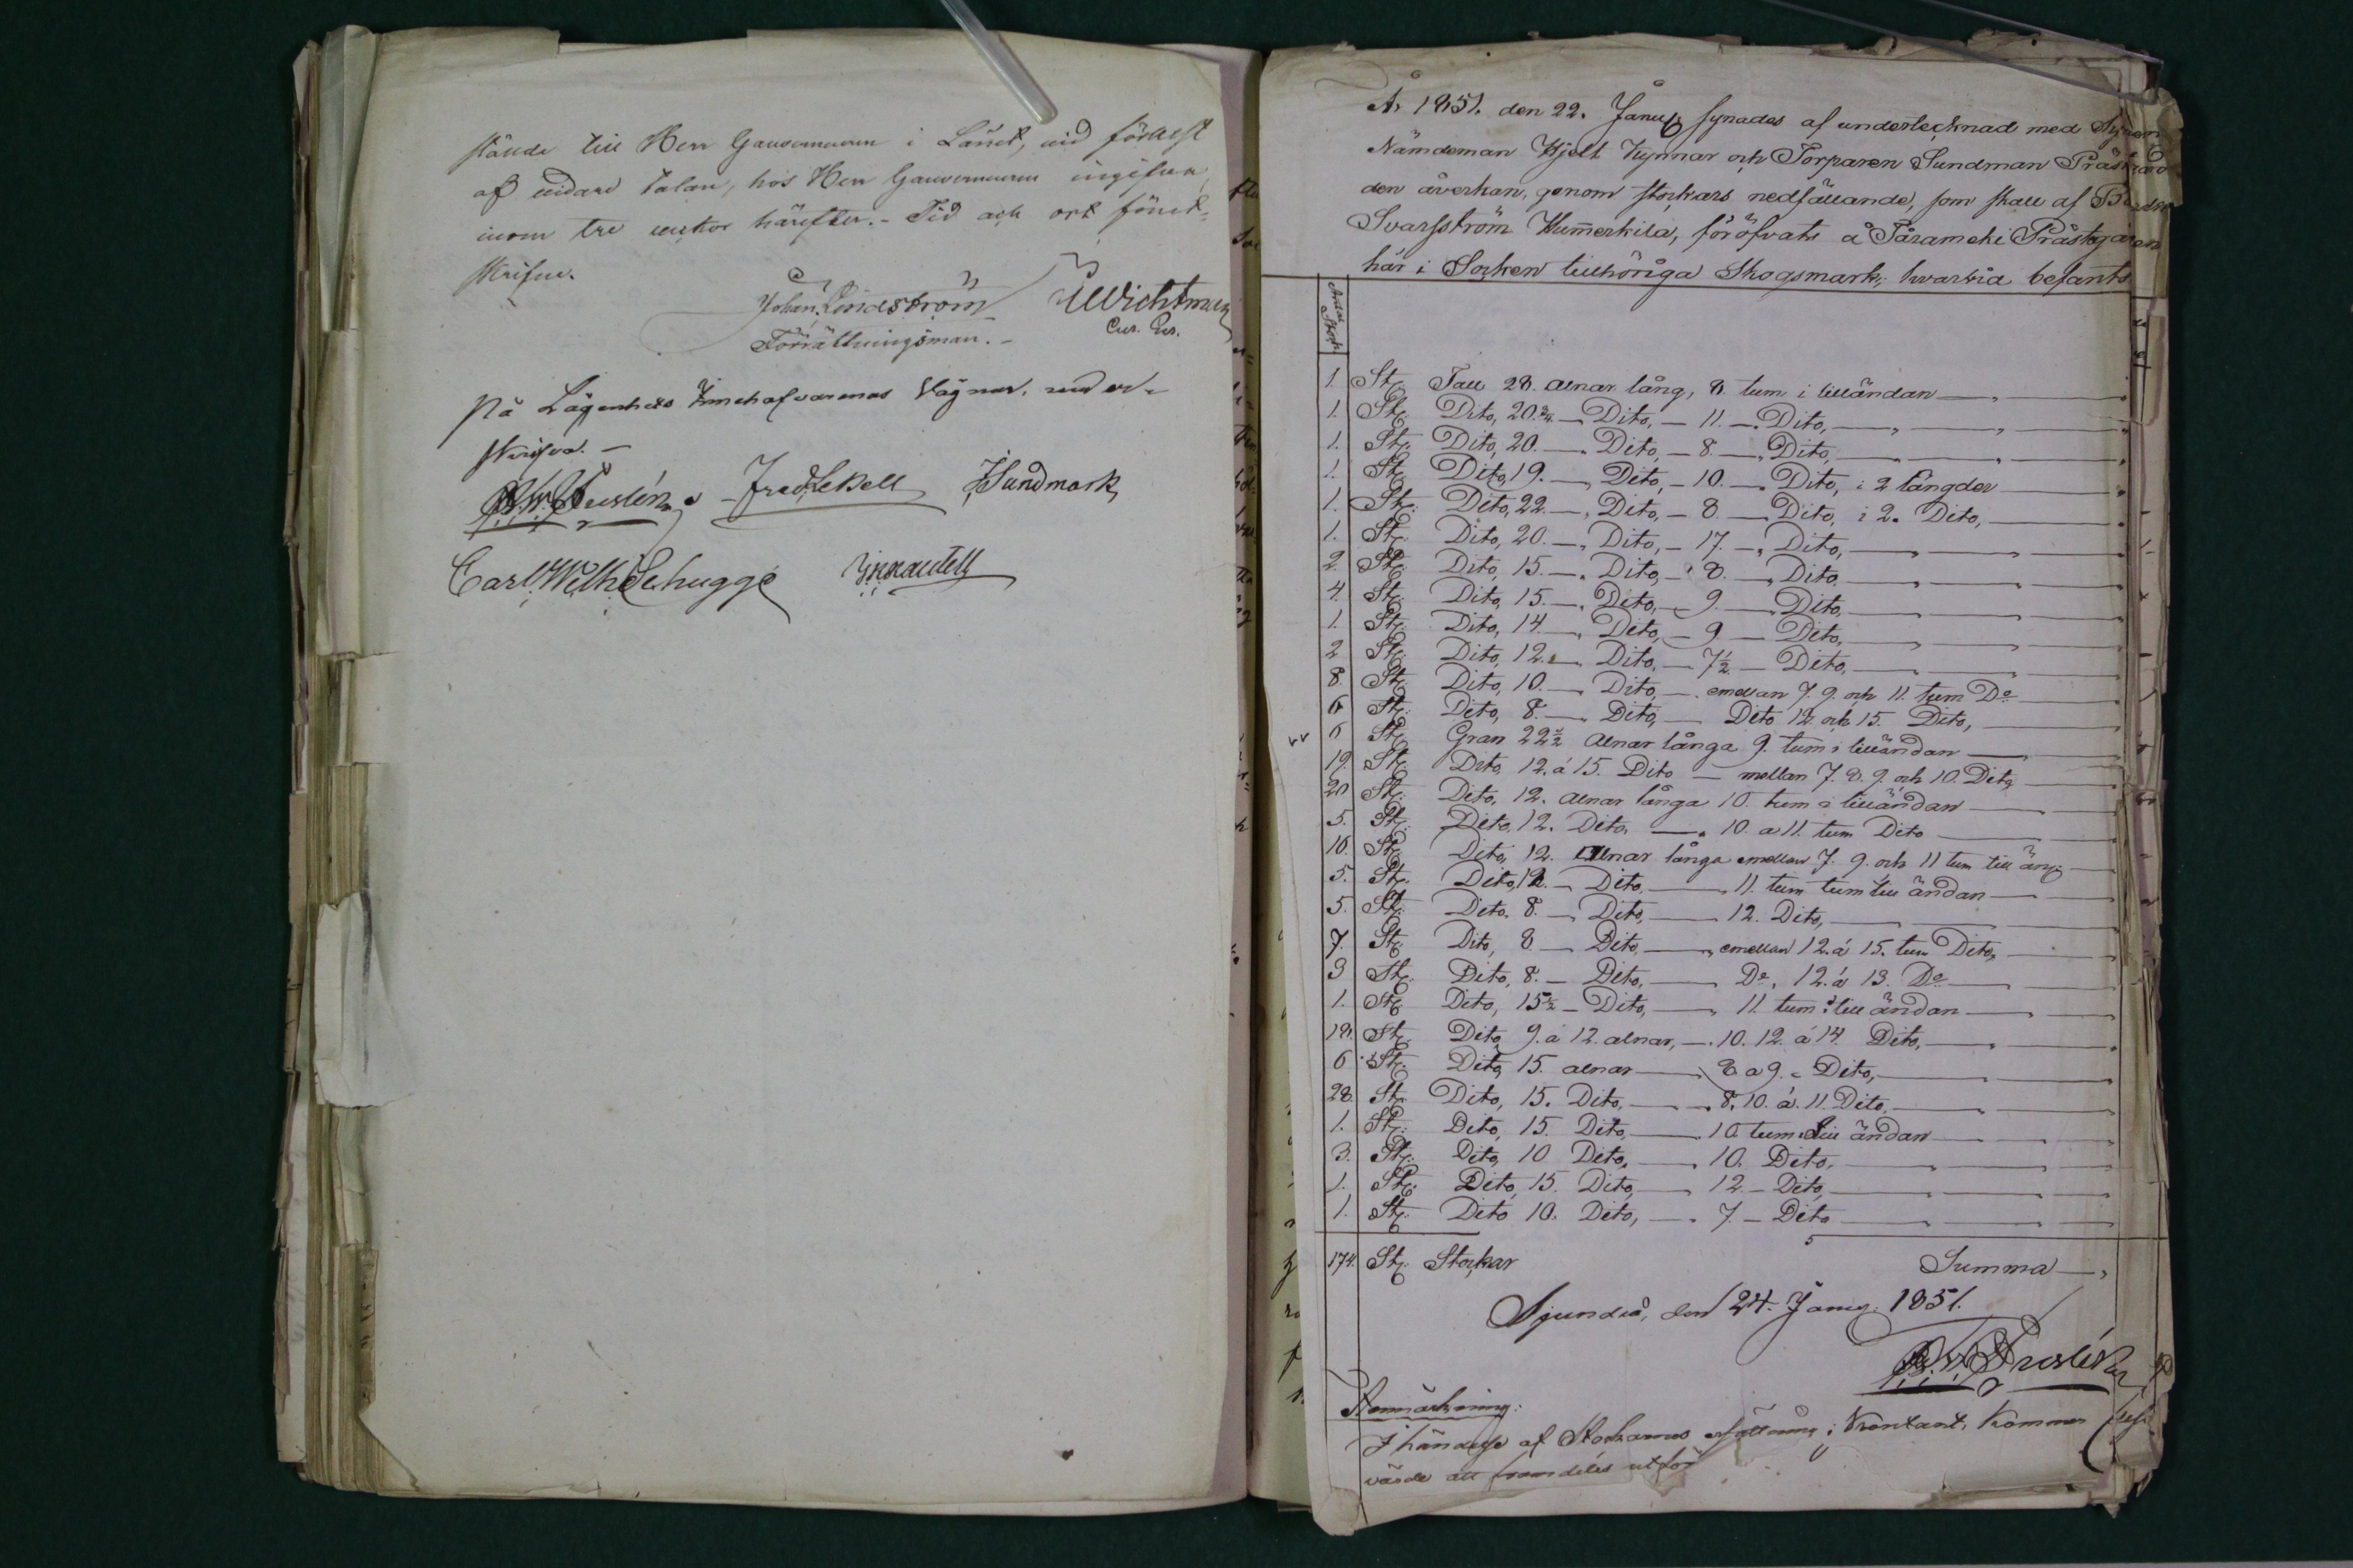 stånde till Herr Gouverneuren i Länet, vid förlust
af vidare talan, hos Herr Gouverneuren ingifva,
inom tre veckor härefter. - Tid och ort förut-
skrifne.
Johan Lindström
Förrättningsman. -
På Lägenhets Innehafvarenas Vägnar, under-
skrifva. -
Fred Lekell Sundmark
Carl Wilh Schugge
År 1851. den 22. Januarj synades af undertecknad med
Nämdeman Hjelt Kynnar och Torparen Sundman
den åverkan, genom stockars nedfällande, som skall af
Svarfström Hummerkila, föröfvats å Pårameki Prästegården
här i Socken tillhöriga Skogsmark; hvarvid befants
Antal Stock
1. St: Tall 28. alnar lång, 8. tum i lilländan
1. St: Dito, 20 3/4 — Dito, — 11. — Dito,
1. St: Dito, 20. — Dito, — 8. — Dito,
1. St: Dito, 19. — Dito, — 10. — Dito, i 2 längder
1. St: Dito, 22. — Dito, — 8. — Dito, i 2. Dito,
1. St: Dito, 20. — Dito, — 17. — Dito,
2. St: Dito, 15. — Dito, — 8. — Dito,
4. St: Dito, 15. — Dito, — 9. — Dito,
1. St: Dito, 14. — Dito, — 9 — Dito,
2 St: Dito, 12. — Dito, — 7½ — Dito,
8. St: Dito, 10. — Dito, — emellan 7. 9. och 11. tum Do
6 St: Dito, 8. — Dito, — Dito 12 och 15. Dito,
6 St: Gran 22½ alnar långa 9. tum i lilländan
19. St: Dito, 12. á 15. Dito — mellan 7. 8. 9. och 10. Dito,
20 St: Dito, 12. alnar långa 10. tum i lilländan
5. St: Dito, 12. Dito, — 10. a 11. tum Dito
10. St: Dito, 12. Alnar långa emellan 7. 9. och 11 tum lill än:
5. St: Dito, 12. — Dito, — 11. tum tum lill ändan
5. St: Dito, 8. — Dito, — 12. Dito,
7. St: Dito, 8. — Dito, — emellan 12. á 15. tum Dito,
9 St: Dito, 8. — Dito, — Do, 12. á 13. Do
1. St: Dito, 15½ — Dito, — 11 tum i lill ändan
18. St: Dito, 9. á 12. alnar, — 10. 12. á 14. Dito,
6 St: Dito, 15. alnar — 8 a 9. — Dito,
28. St: Dito, 15. Dito, — 8. 10. á. 11. Dito,
1. St: Dito, 15. Dito, — 10. tum i lill ändan
3. St: Dito, 10 Dito, — 10. Dito,
1. St: Dito, 15. Dito, — 12 — Dito,
1. St: Dito 10. Dito, — 7. — Dito
174. St: Stockar Summa
Sjundeå, den 24. Januarj 1851.
Anmärkning:
I händelse af Stockarnes i Kontant, Kommer
värde att framdeles utför